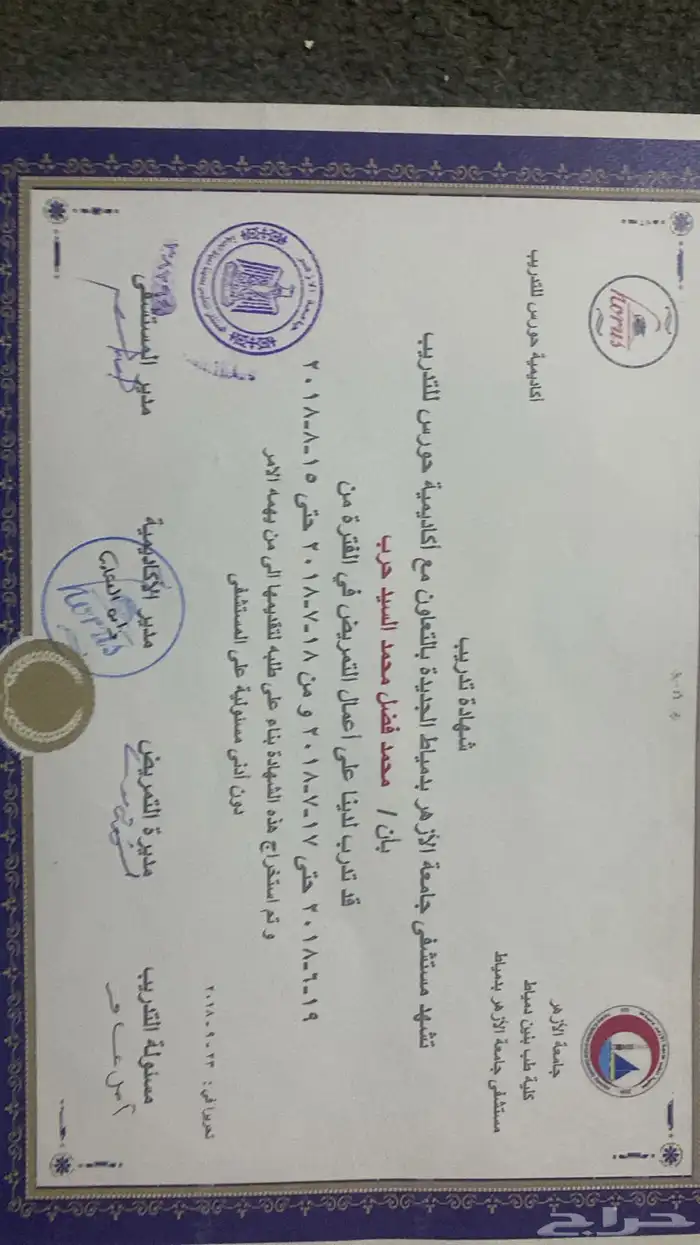 جامعة الأزهر
كلية طب بنين دمياط
مستشفى جامعة الأزهر بدمياط
horus
أكاديمية حورس للتدريب
شهادة تدريب
تشهد مستشفى جامعة الأزهر بدمياط الجديدة بالتعاون مع أكاديمية حورس للتدريب
بأن / محمد فضل محمد السيد حرب
قد تدرب لدينا على أعمال التمريض في الفترة من
١٩-٦-٢٠١٨ حتى ١٧-٧-٢٠١٨ و من ١٨-٧-٢٠١٨ حتى ١٥-٨-٢٠١٨
و تم استخراج هذه الشهادة بناء على طلبه لتقديمها الى من يهمه الامر
دون أدنى مسئولية على المستشفى
تحريرا في : ٢٣-٩-٢٠١٨
مسئولة التدريب
مديرة التمريض
مدير الأكاديمية
مدير المستشفى
horus
حراج